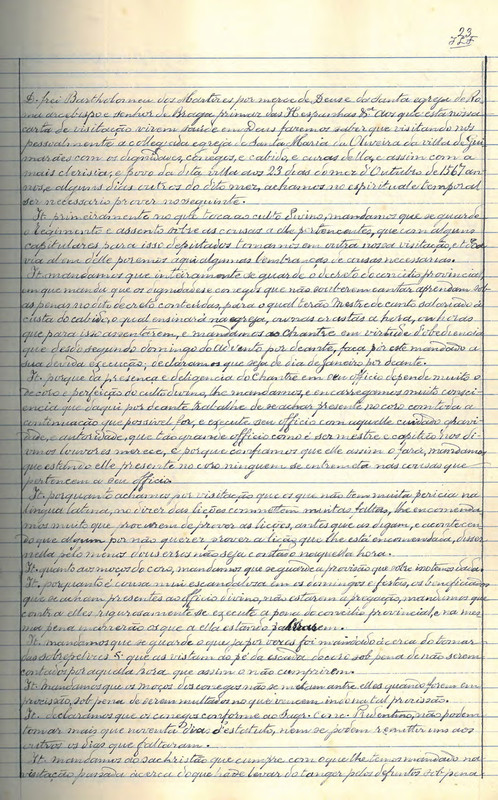 23
D. frei Bartholomeu dos Martires por merce de Deus e da Santa egreja de Ro-
ma arcebispo e senhor de Braga primaz das Hespanhas &ª aos que esta nossa
carta de visitação virem saude em Deus faremos saber que visitando nós
pessoalmente a collegiada egreja de Santa Maria da Oliveira da villa de Gui-
marães com os dignidades, conegos, e cabido, e curas della, e assim com a
mais clerisia, e povo da dita villa aos 23 dias do mez d'Outubro de 1567 an-
nos, e alguns dias outros do dito mez, achamos no espiritual e temporal
ser necessario prover no seguinte.
It. primeiramente no que toca ao culto divino, mandamos que se guarde
o regimento e assento sobre as cousas a elle pertencentes, que com alguns
capitulares para isso deputados tomamos em outra nossa visitação, e toda
via alem d'elle poremos aqui algumas lembranças de cousas necessarias.
It. mandamos que inteiramente se guarde o decreto do concilio provincial,
em que manda que os dignidades e conegos que não souberem cantar aprendam sob
as penas no dito decreto conteudas, para o qual terão Mestre do canto salariado á
custa do cabido, o qual ensinará na egreja, ou nas crastas a hora, ou horas
que para isso assentarem, e mandamos ao Chantre em virtude d'obediencia
que desdo segundo domingo do advento por deante, faça pôr este mandado a
sua devida execução; declaramos que seja do dia de janeiro por deante.
It. porque da presença e deligencia do Chantre em seu officio depende muito o
decoro e perfeição do culto divino, lhe mandamos, e encarregamos muito consci-
encia que d'aqui por deante trabalhe de se achar presente no coro com toda a
continuação que possivel for, e execute seu officio com aquelle cuidado gravi-
dade, e autoridade, que tão grande officio como é ser mestre e capitão dos di-
vinos louvores merece, e porque confiamos que elle assim o fará, mandamos
que estando elle presente no coro ninguem se entremeta nas cousas que
pertencem a seu officio.
It. porquanto achamos por visitação que os que não tem muita pericia na
lingua latina, no dizer das lições commettem muitas faltas, lhe encomenda-
mos muito que procurem de prover as licções, antes que as digam, e acontecen-
do que algum por não querer prover a lição que lhe está encomendada, disser
nella pelo menos dous erros não seja contado naquella hora.
It. quanto aos moços do coro, mandamos que se guarde a provisão que sobre isso temos dada.
It. porquanto é cousa mui escandalosa em os domingos e festas, os beneficiados
que se acham presentes ao officio divino, não estarem á pregação, queremos que
contra elles rigurosamente se execute a pena do concilio provincial, e na mes-
ma pena incorrerão os que n'ella estando se sahirem.
It. mandamos que se guarde o que ja por vezes foi mandado ácerca do tomar
das sobrepelizes Sº que as vistam ao pé da escada do coro sob pena de não serem
contados por aquella hora que assim o não cumprirem.
It. mandamos que os moços dos conegos não se metam antre elles quando forem em
procissão, sob pena de serem multados no que vencem indo na tal procissão.
It. declaramos que os conegos conforme ao Sagr. Conc. Tridentino, não podem
tomar mais que noventa dias d'estatuto, nem se podem remittir uns aos
outros os dias que faltaram.
It. mandamos ao sachristão que cumpra com o que lhe temos mandado na
visitação passada ácerca do que ha de levar do tanger pelos defuntos sob pena